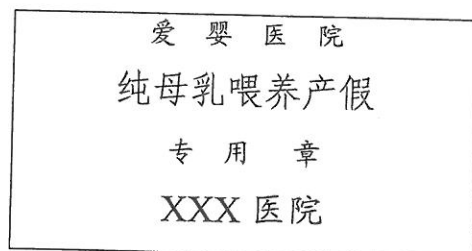 爱 婴 医 院
纯母乳喂养产假
专 用 章
XXX 医院